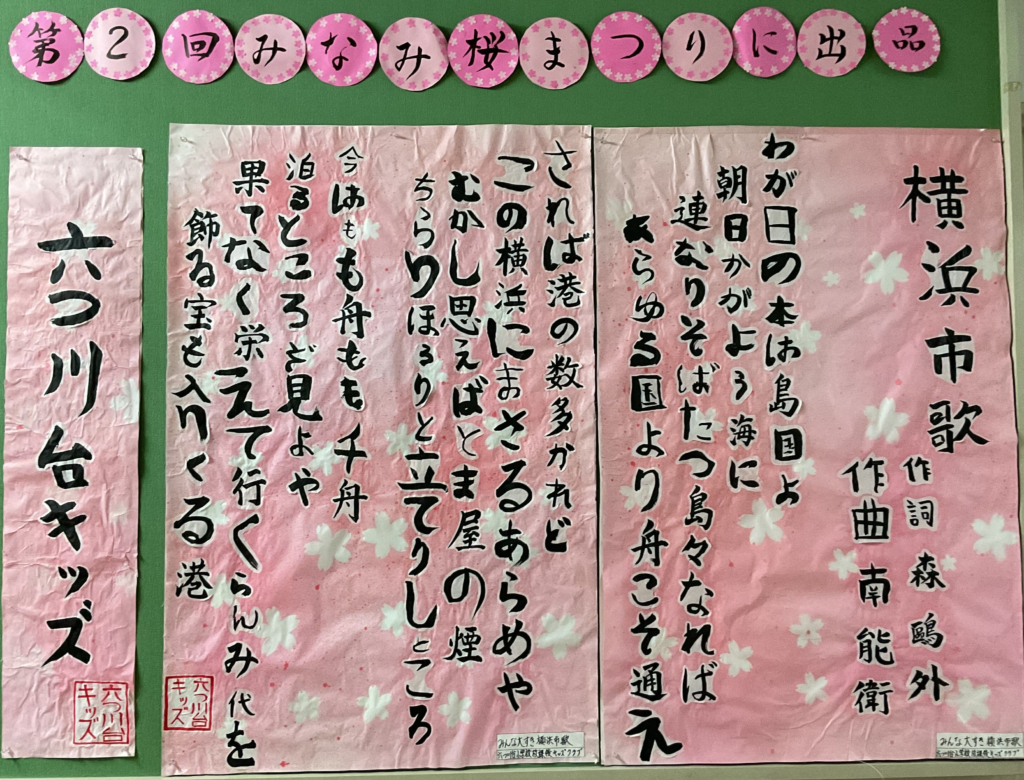 第2回みなみ桜まつりに出品
横浜市歌
作詞 森鷗外
作曲 南能衛
わが日の本は島国よ
朝日かがよう海に
連なりそばたつ島々なれば
あらゆる国より舟こそ通え
されば港の数多かれど
この横浜にまさるあらめや
むかし思えばとま屋の煙
ちらりほらりと立てりしところ
今はもも舟もも千舟
泊るところぞ見よや
果てなく栄えて行くらんみ代を
飾る宝も入りくる港
六つ川台キッズ
六つ川台
キッズ
六つ川台
キッズ
みんな大すき横浜市歌
みんな大すき横浜市歌